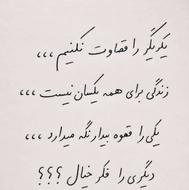 یکدیگر را قضاوت نکنیم ،،،
زندگی برای همه یکسان نیست ،،،
یکی را قهوه بیدار نگه میدارد ،،،
دیگری را فکر خیال ؟؟؟